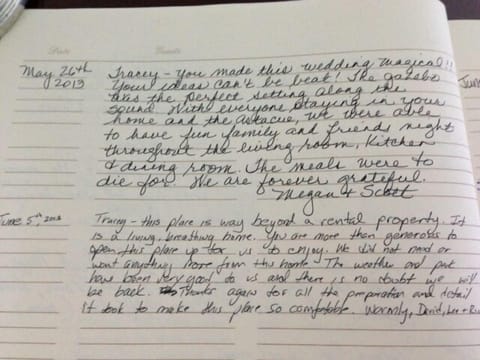 Date Guests
May 26th Tracey - you made this wedding magical!!
2013 Your ideas can't be beat! The gazebo
was the perfect setting along the
sound. With everyone staying in your
home and the , we were able
to have fun family and friends night
throughout the living room, kitchen
& dining room. The meals were to
die for. We are forever grateful.
Megan & Scott
June 5th, 2013 Tracey - this place is way beyond a rental property. It
is a living, breathing home. You are more then generous to
open this place up for us to enjoy. We did not need or
want anything more from this home. The weather and
have been very good to us and there is no doubt we will
be back. Thanks again for all the preparation and detail
it took to make this place so comfortable. Warmly, David, Lee +